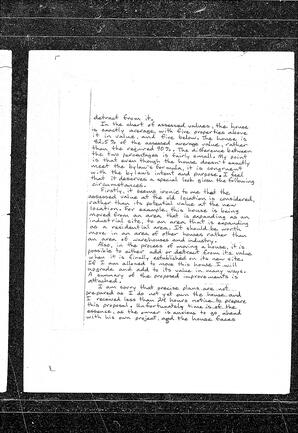 detract from it.
In the chart of assessed values, the house
is exactly average, with five properties above
it in value, and five below. The house is
82.5% of the assessed average value, rather
than the required 90%. The difference between
the two percentages is fairly small. My point
is that even though the house doesn't exactly
meet the bylaw's formula, it is congruent
with the bylaw's intent and purpose. I feel
that it deserves a special look given the following
circumstances.
Firstly, it seems ironic to me that the
assessed value at the old location is considered,
rather than its potential value at the new
location. For example, this house is being
moved from an area that is expanding as an
industrial site, to an area that is expanding
as a residential area. It should be worth
more in an area of other houses rather than
an area of warehouses and industry.
Also, in the process of moving a house, it is
possible to either add or detract from its value
when it is finally established on its new site.
If I am allowed to move this house I will
upgrade and add to its value in many ways.
A summary of the proposed improvements is
attached.
I am sorry that precise plans are not
prepared as I do not yet own the house, and
I received less than 24 hours notice to prepare
this proposal. Unfortunately time is of the
essence, as the owner is anxious to go ahead
with his own project, and the house faces